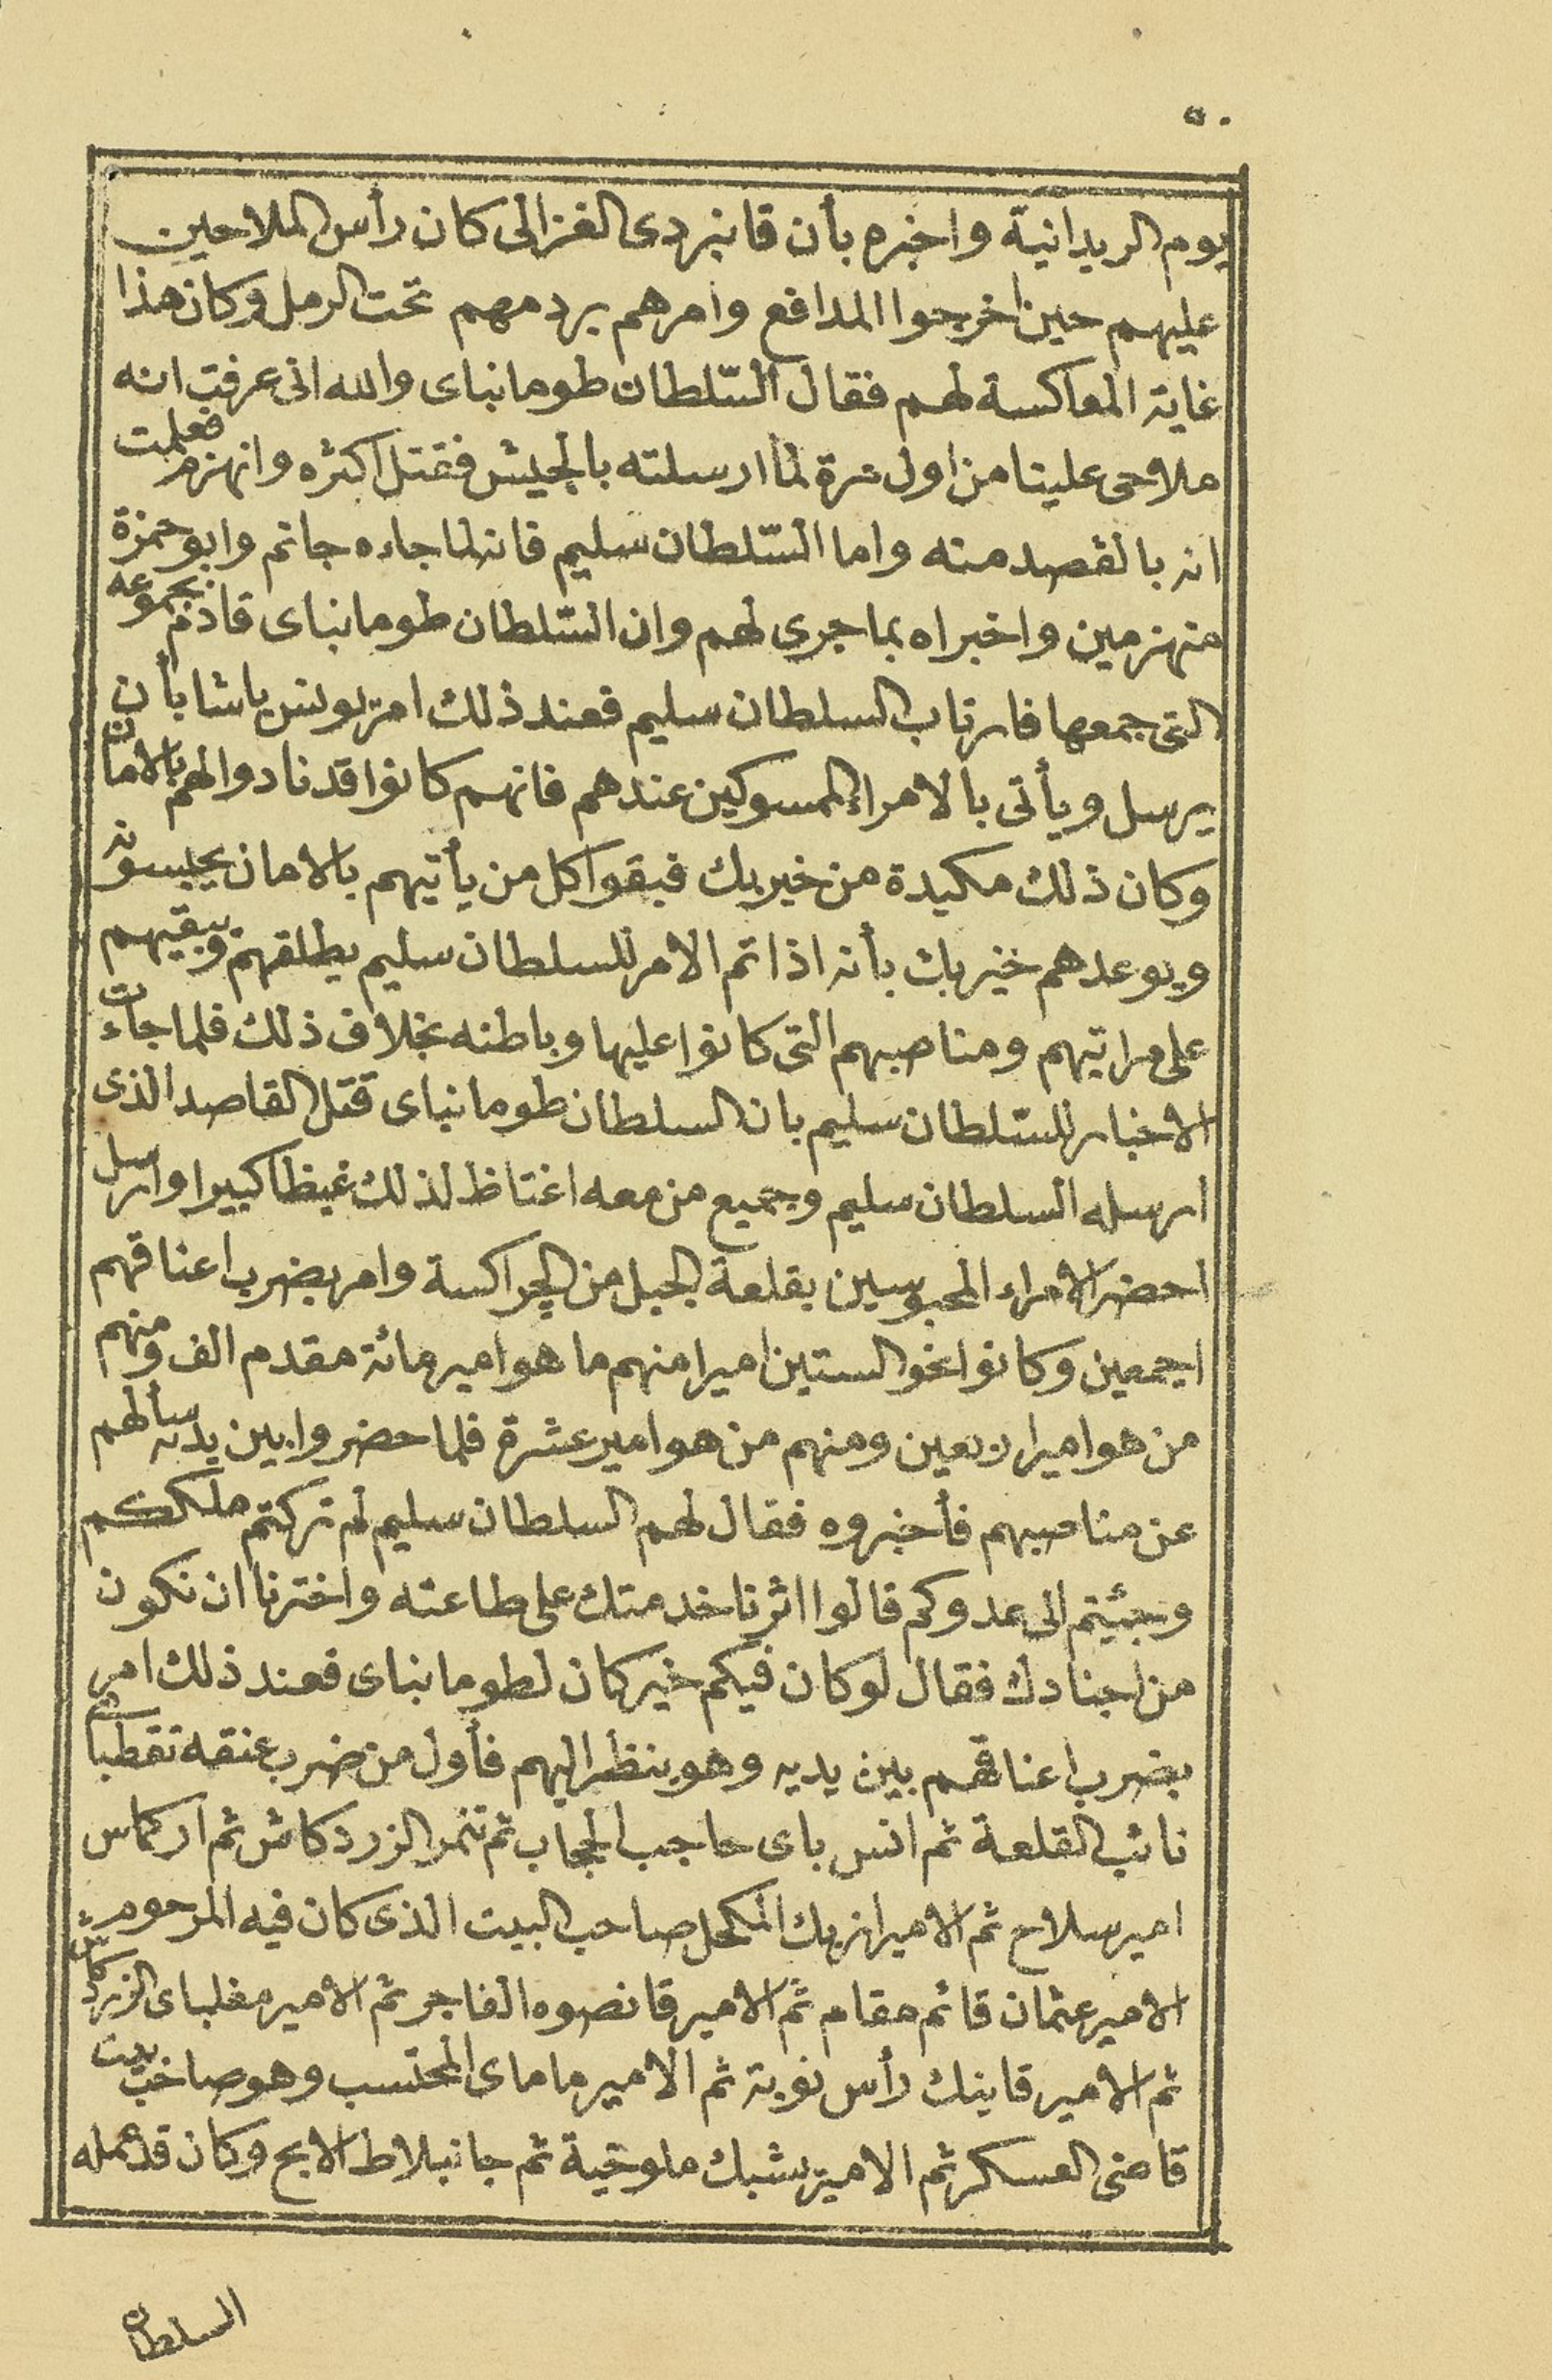 ٥٠
يوم الريدانية واخبره بأن قانبردى الغزالى كان رأس الملاحين
عليهم حين اخرجوا المدافع وامرهم بردمهم تحت الرمل وكان هذا
غاية المعاكسة لهم فقال السّلطان طومانباى والله انى عرفت انه
ملاحى علينا من اول مرة لما ارسلته بالجيش فقتل اكثره وانهزم فعلمت
انه بالقصد منه واما السّلطان سليم فانه لما جاءه جانم وابو حمزة
منهزمين واخبراه بما جرى لهم وان السّلطان طومانباى قادم بجموعه
التى جمعها فارتاب السلطان سليم فعند ذلك امر يونس باشا بأن
يرسل ويأتى بالامراء الممسوكين عندهم فانهم كانوا قد نادوا لهم بالامان
وكان ذلك مكيدة من خيربك فبقوا كل من يأتيهم بالامان يحبسونه
ويوعدهم خيربك بأنه اذا تم الامر للسلطان سليم يطلقهم ويبقيهم
على مراتبهم ومناصبهم التى كانوا عليها وباطنه بخلاف ذلك فلما جاءت
الاخبار للسّلطان سليم بان السلطان طومانباى قتل القاصد الذى
ارسله السلطان سليم وجميع من معه اغتاظ لذلك غيظا كبيرا وارسل
احضر الامراء المحبوسين بقلعة الجبل من الجراكسة وامر بضرب اعناقهم
اجمعين وكانوا نحو الستين اميرا منهم ما هو امير مائة مقدم الف ومنهم
من هو امير اربعين ومنهم من هو امير عشرة فلما حضروا بين يديه سألهم
عن مناصبهم فأخبروه فقال لهم السلطان سليم لم تركتم ملككم
وجئيتم الى عدوكم قالوا اثرنا خدمتك على طاعته واخترنا ان نكون
من اجنادك فقال لو كان فيكم خير كان لطومانباى فعند ذلك امر
بضرب اعناقهم بين يديه وهو ينظر اليهم فأول من ضرب عنقه تقطباى
نائب القلعة ثم انس باى حاجب الحجاب ثم تنمر الزردكاش ثم اركماس
امير سلاح ثم الامير ازبك المكحل صاحب البيت الذى كان فيه المرحوم
الامير عثمان قائم مقام ثم الامير قانصوه الفاجر ثم الامير مغلباى الزردكاش
ثم الامير قاينك رأس نوبة ثم الامير ماماى المحتسب وهو صاحب بيت
قاضى العسكر ثم الامير يشبك ملوخية ثم جانبلاط الابح وكان قد عمله
السلطان